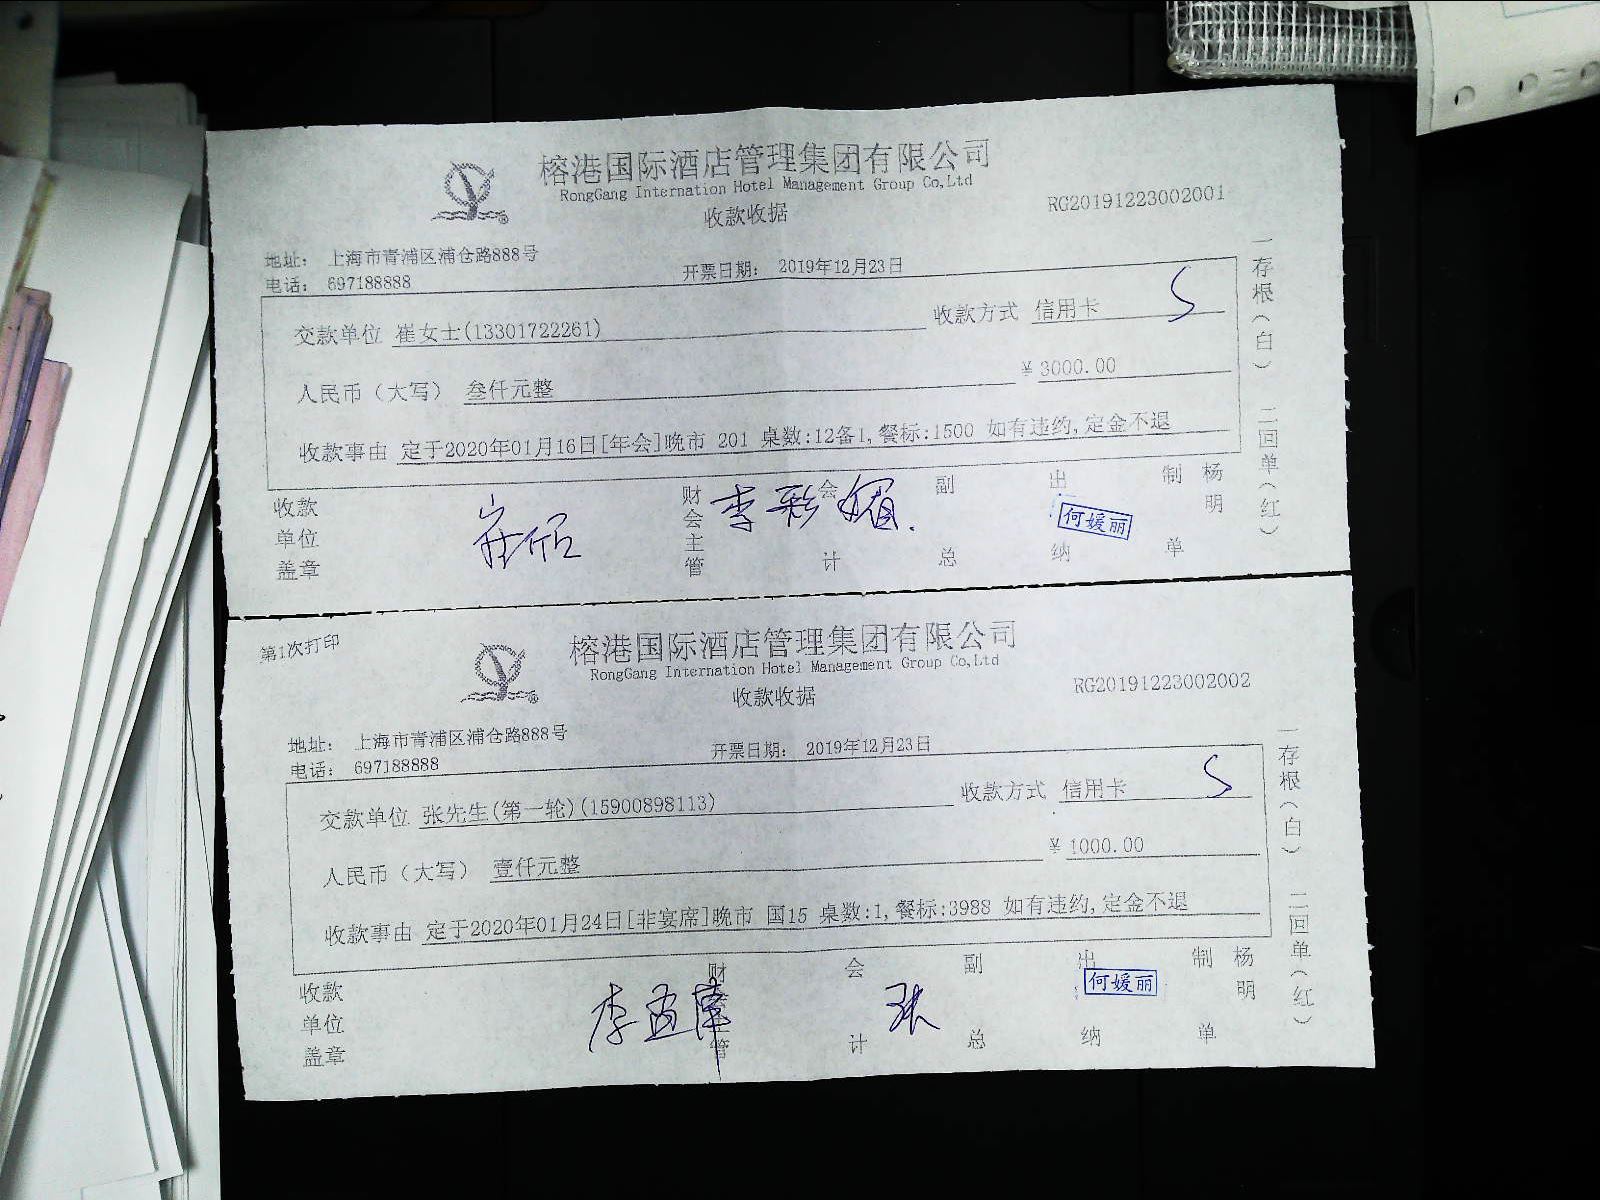 榕港国际酒店管理集团有限公司
RongGang Internation Hotel Management Group Co,Ltd
收款收据
RG20191223002001
地址： 上海市青浦区浦仓路888号
电话： 697188888
开票日期： 2019年12月23日
交款单位 崔女士(13301722261)
收款方式 信用卡
人民币（大写） 叁仟元整
¥ 3000.00
收款事由 定于2020年01月16日[年会]晚市 201 桌数:12备1,餐标:1500 如有违约,定金不退
收款单位盖章
财会主管
李彩媚
会计
副总
出纳
何媛丽
制单
杨明
一存根（白） 二回单（红）
第1次打印
榕港国际酒店管理集团有限公司
RongGang Internation Hotel Management Group Co,Ltd
收款收据
RG20191223002002
地址： 上海市青浦区浦仓路888号
电话： 697188888
开票日期： 2019年12月23日
交款单位 张先生(第一轮)(15900898113)
收款方式 信用卡
人民币（大写） 壹仟元整
¥ 1000.00
收款事由 定于2020年01月24日[非宴席]晚市 国15 桌数:1,餐标:3988 如有违约,定金不退
收款单位盖章
财会主管
会计
副总
出纳
何媛丽
制单
杨明
一存根（白） 二回单（红）